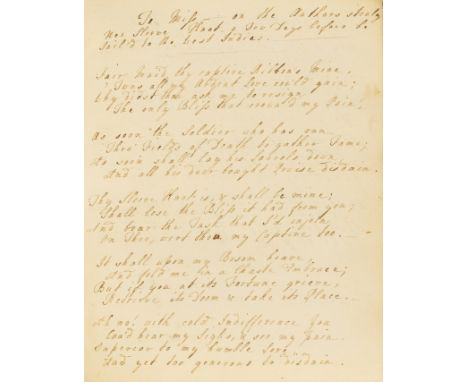 To Miss — on the Authors stealing
Her Sleeve Knot a Few Days before he
Sail'd to the West Indies.
Fair Maid, thy captive Ribbon's Mine,
'Twas all my Ardent Love could gain;
Why didst thou ask me to resign
The only Bliss that eas'd my Pain.
As soon the Soldier who has ran
Thro' Fields of Death to gather Fame;
As soon shall lay his Laurels down,
And all his dear bought Praise disdain.
Thy Sleeve Knot is, & shall be mine;
Shall lose the Bliss it had from you;
And bear the Task that I'd enjoin
On Thee, wert thou my Captive too.
It shall upon my Bosom heave,
And fold me in a Chaste Embrace;
But if you at its Fortune grieve,
Reverse its Doom & take its Place.
Ah no! with cold Indifference You
Could hear my Sighs, & see my pain
Superior to my humble
And yet too generous to disdain.